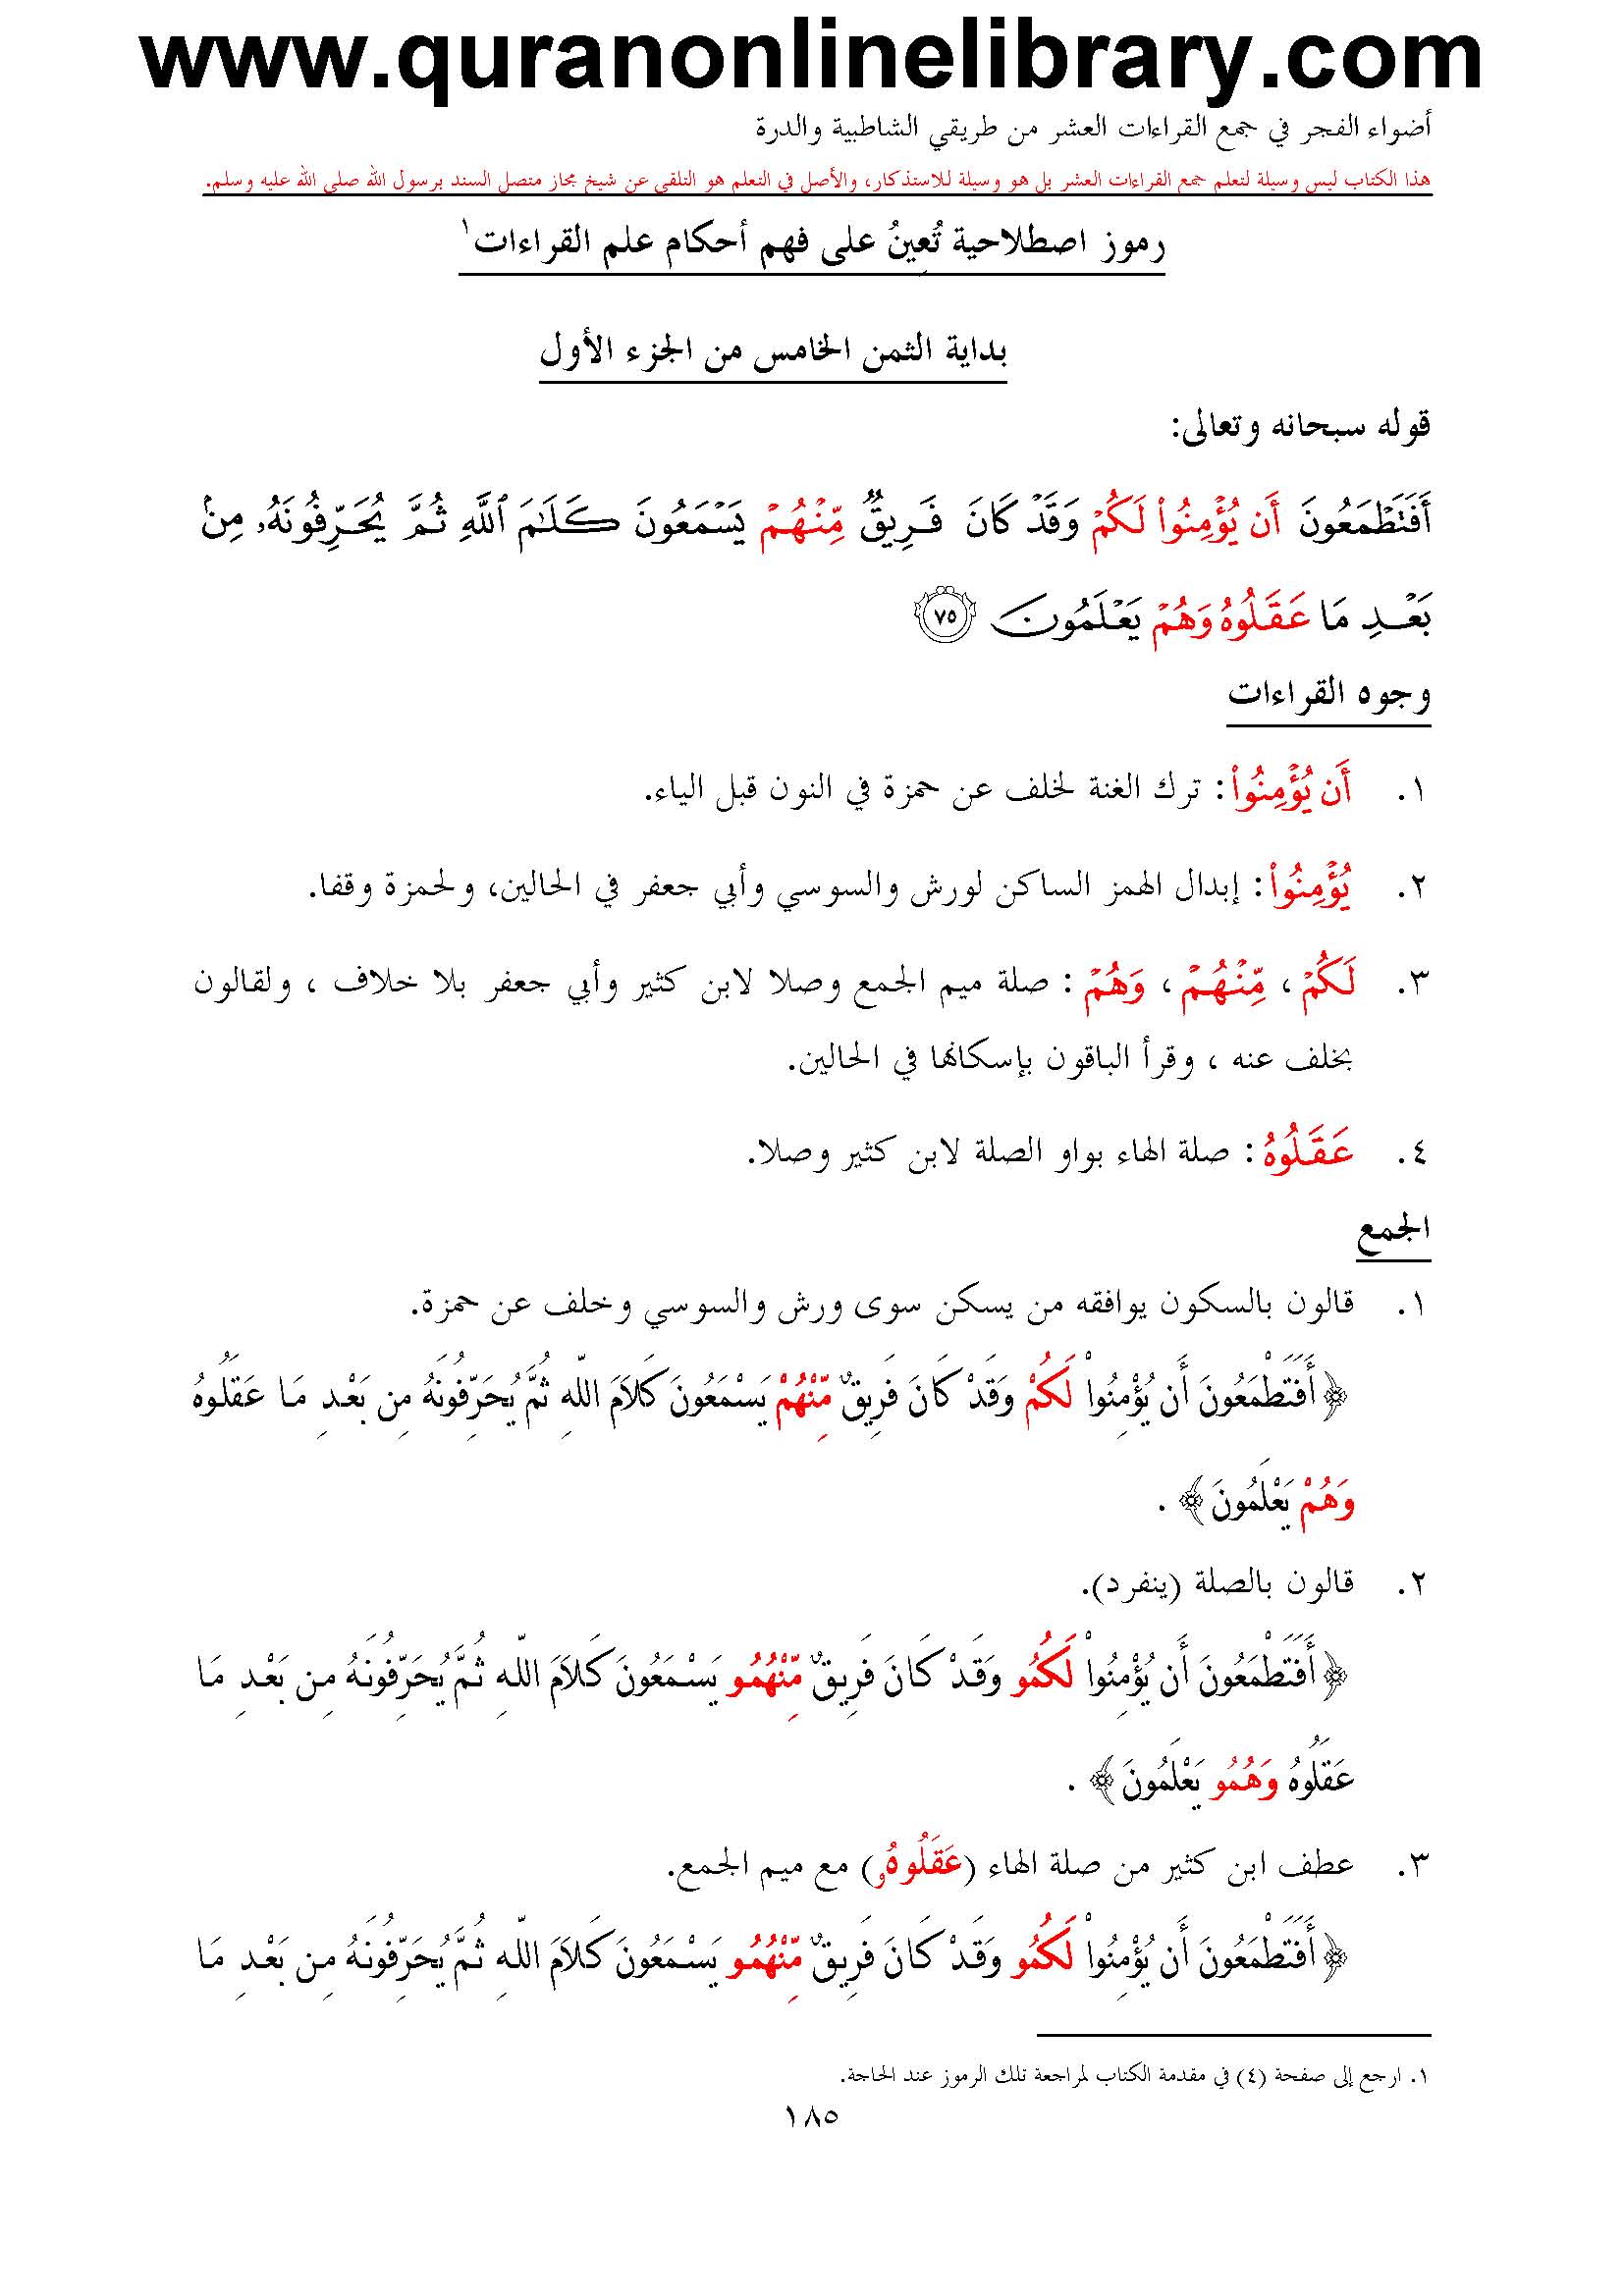 www.quranonlinelibrary.com
أضواء الفجر في جمع القراءات العشر من طريقي الشاطبية والدرة
هذا الكتاب ليس وسيلة لتعلم جمع القراءات العشر بل هو وسيلة للاستذكار، والأصل في التعلم هو التلقي عن شيخ مجاز متصل السند برسول الله صلى الله عليه وسلم.
رموز اصطلاحية تُعِينُ على فهم أحكام علم القراءات١
بداية الثمن الخامس من الجزء الأول
قوله سبحانه وتعالى:
أَفَتَطۡمَعُونَ أَن يُؤۡمِنُواْ لَكُمۡ وَقَدۡ كَانَ فَرِيقٞ مِّنۡهُمۡ يَسۡمَعُونَ كَلَٰمَ ٱللَّهِ ثُمَّ يُحَرِّفُونَهُۥ مِنۢ
بَعۡدِ مَا عَقَلُوهُ وَهُمۡ يَعۡلَمُونَ ٧٥
وجوه القراءات
١. أَن يُؤۡمِنُواْ: ترك الغنة لخلف عن حمزة في النون قبل الياء.
٢. يُؤۡمِنُواْ: إبدال الهمز الساكن لورش والسوسي وأبي جعفر في الحالين، ولحمزة وقفا.
٣. لَكُمۡ ، مِّنۡهُمۡ ، وَهُمۡ : صلة ميم الجمع وصلا لابن كثير وأبي جعفر بلا خلاف ، ولقالون
بخلف عنه ، وقرأ الباقون بإسكانها في الحالين.
٤. عَقَلُوهُ: صلة الهاء بواو الصلة لابن كثير وصلا.
الجمع
١. قالون بالسكون يوافقه من يسكن سوى ورش والسوسي وخلف عن حمزة.
﴿أَفَتَطْمَعُونَ أَن يُؤْمِنُواْ لَكُمْ وَقَدْ كَانَ فَرِيقٌ مِّنْهُمْ يَسْمَعُونَ كَلاَمَ اللّهِ ثُمَّ يُحَرِّفُونَهُ مِن بَعْدِ مَا عَقَلُوهُ
وَهُمْ يَعْلَمُونَ﴾ .
٢. قالون بالصلة (ينفرد).
﴿أَفَتَطْمَعُونَ أَن يُؤْمِنُواْ لَكُمُو وَقَدْ كَانَ فَرِيقٌ مِّنْهُمُو يَسْمَعُونَ كَلاَمَ اللّهِ ثُمَّ يُحَرِّفُونَهُ مِن بَعْدِ مَا
عَقَلُوهُ وَهُمُو يَعْلَمُونَ﴾ .
٣. عطف ابن كثير من صلة الهاء (عَقَلُوهُۥ) مع ميم الجمع.
﴿أَفَتَطْمَعُونَ أَن يُؤْمِنُواْ لَكُمُو وَقَدْ كَانَ فَرِيقٌ مِّنْهُمُو يَسْمَعُونَ كَلاَمَ اللّهِ ثُمَّ يُحَرِّفُونَهُ مِن بَعْدِ مَا
١. ارجع إلى صفحة (٤) في مقدمة الكتاب لمراجعة تلك الرموز عند الحاجة.
١٨٥